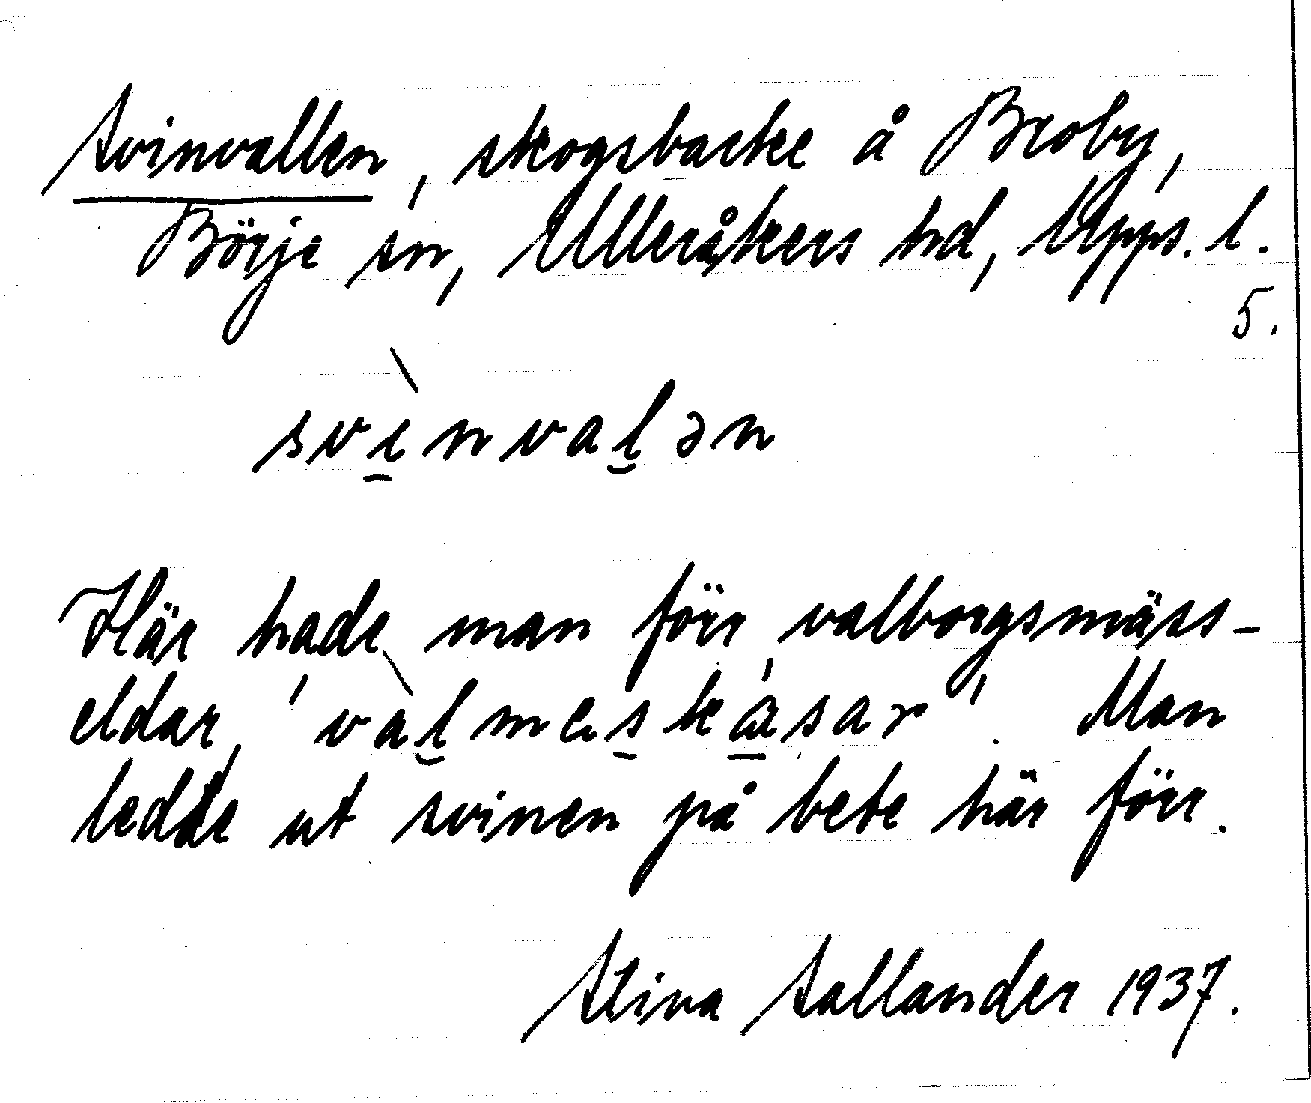 Svinvallen, skogsbacke å Broby,
Börje sn, Ulleråkers hd, Upps. l.
5.
svì̲nval̲ən
Här hade man förr valborgsmäss-
eldar, 'val̲̀mes̲ka̲sar'. Man
ledde ut svinen på bete här förr.
Stina Sallander 1937.